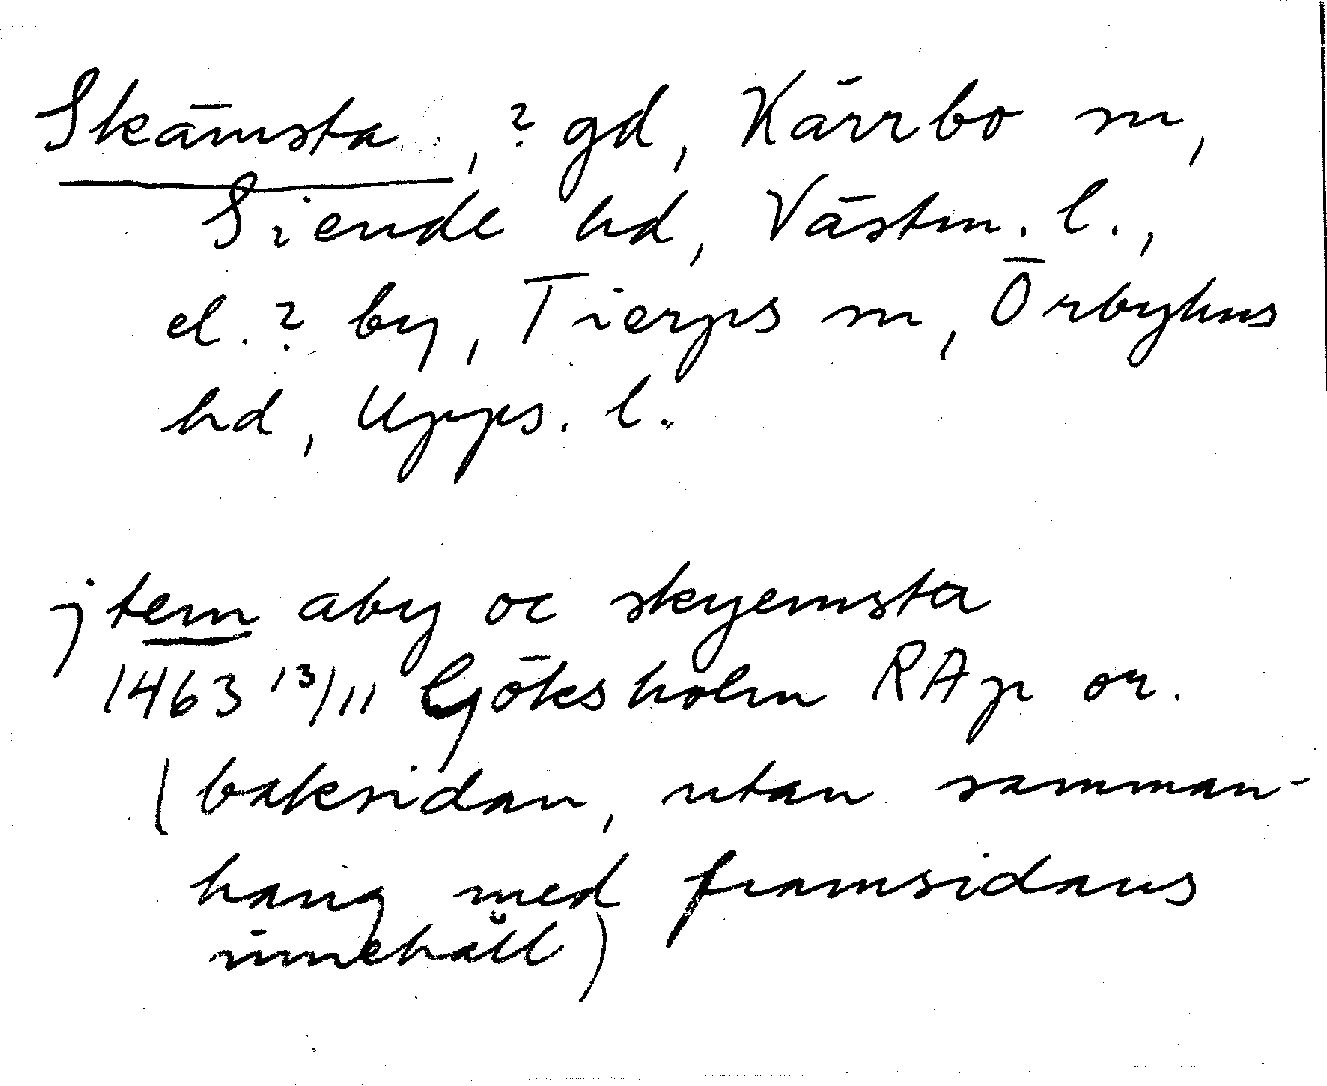 Skämsta, ? gd, Kärrbo sn,
Siende hd, Västm. l.,
el. ? by, Tierps sn, Örbyhus
hd, Upps. l.
jtem aby oc skyemsta
1463 13/11 Göksholm RAp or.
(baksidan, utan samman-
hang med framsidans
innehåll)